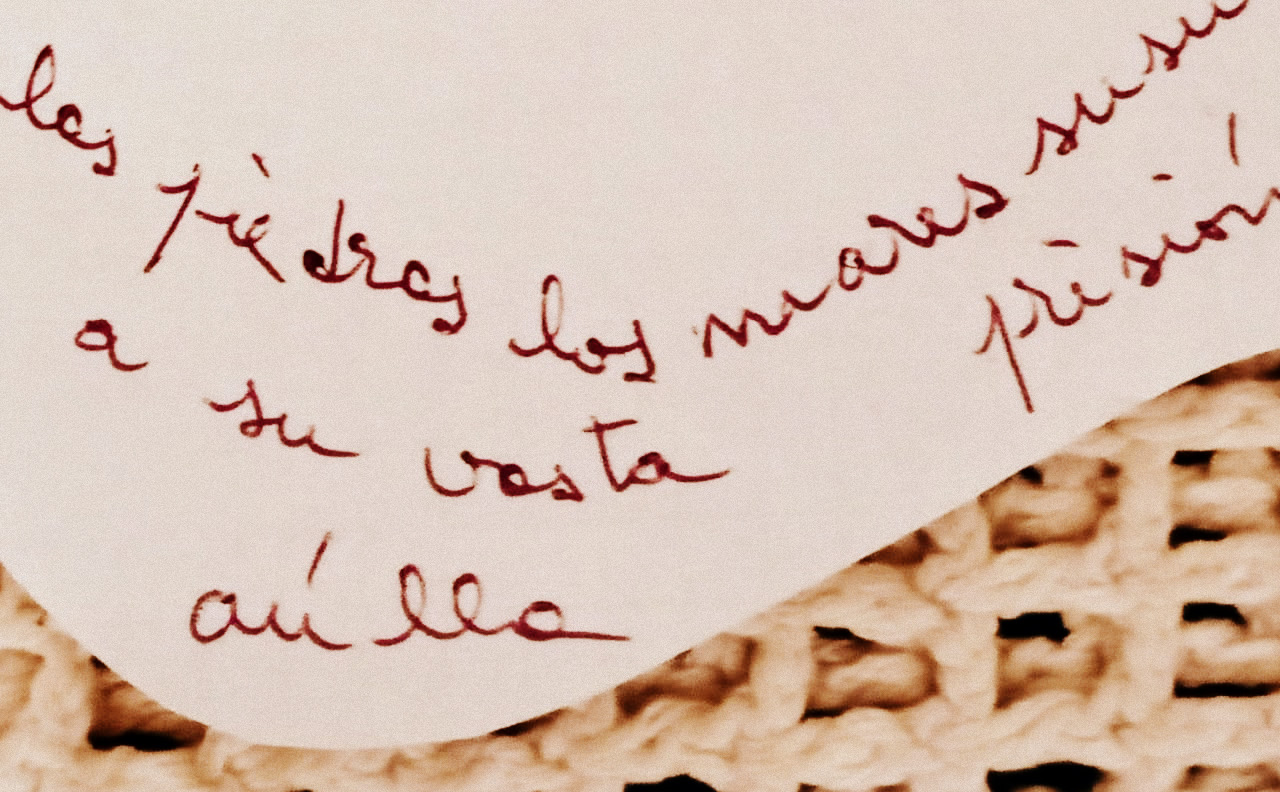 las piedras los mares susu
a su vasta prisión
aúlla